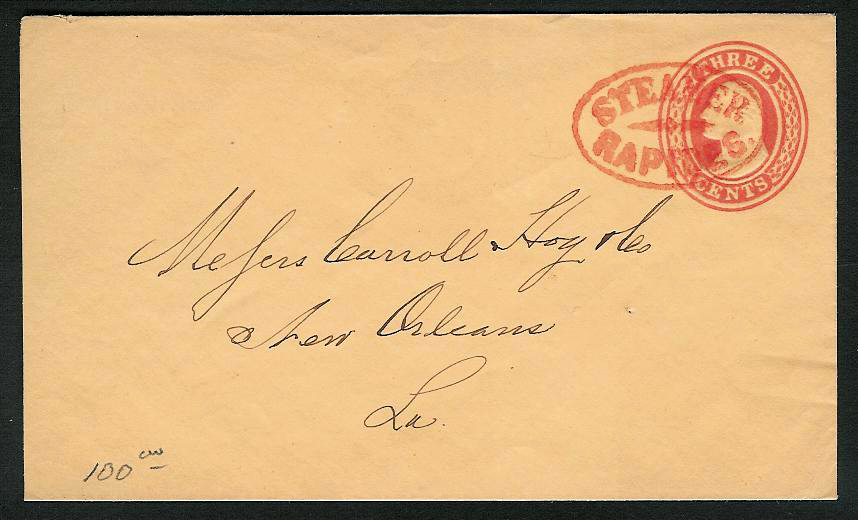 THREE
CENTS
STEAMER
RAPIDES.
Messrs Carroll Hoy & Co
New Orleans
La.
100 00